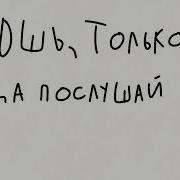 ОШЬ, ТОЛЬКО
, А ПОСЛУШАЙ